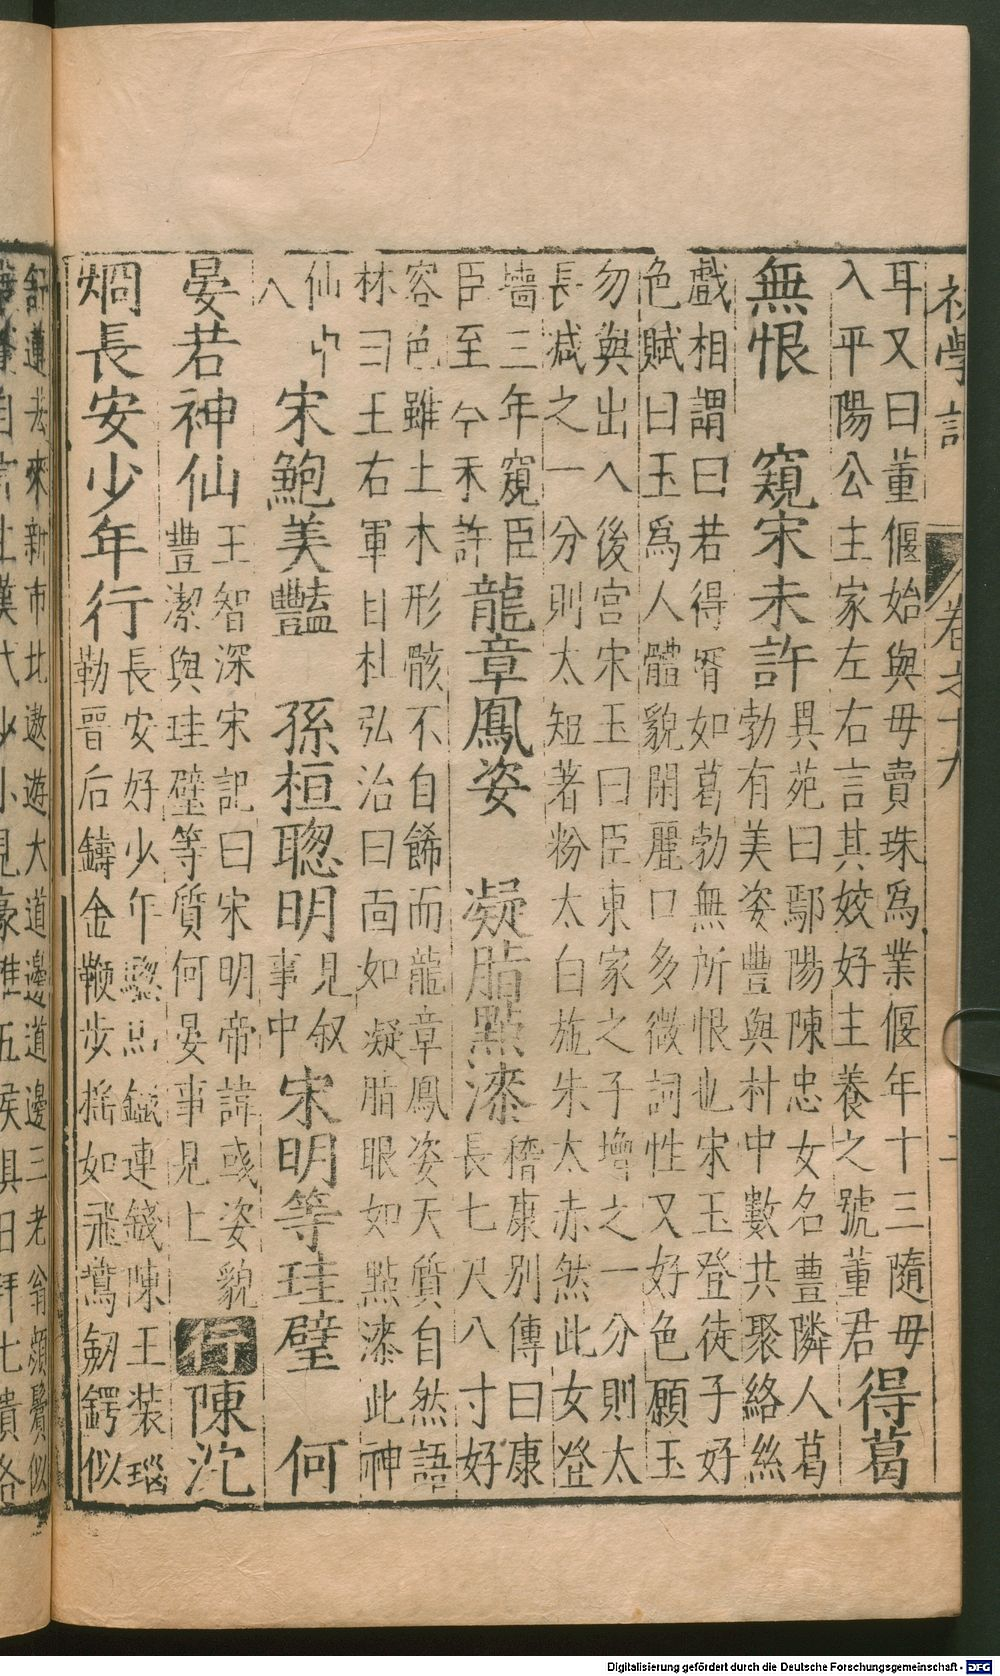 初學記 卷之十九 二
耳又曰董偃始與毋賣珠爲業偃年十三隨毋
入平陽公主家左右言其姣好主養之號董君
得葛
無恨 窺宋未許
異苑曰鄢陽陳忠女名豊隣人葛
勃有美姿豐與村中數共聚絡絲
戲相謂曰若得壻如葛勃無所恨也宋玉登徒子好
色賦曰玉爲人體貌閑麗口多微詞性又好色願玉
勿與出入後宮宋玉曰臣東家之子增之一分則太
長减之一分則太短著粉太白施朱太赤然此女登
墻三年窺臣
臣至今未許
龍章鳳姿 凝脂點漆
嵇康别傳曰康
長七尺八寸好
容色雖土木形骸不自餙而龍章鳳姿天質自然語
林曰王右軍目杜弘治曰面如凝脂眼如點漆此神
仙中
人
宋鮑美豔 孫桓聦明
見叙
事中
宋明等珪璧 何
晏若神仙
王智深宋記曰宋明帝諱彧姿貌
豐潔與珪璧等質何晏事見上
行 陳沈
烱長安少年行
長安好少年驄馬鐵連錢陳王装瑙
勒晋后鑄金鞭步揺如飛鷰劔鍔似
舒蓮去來新市北遨遊大道邊道邊三老翁顔鬢似
衰蓬自言生漢代少小見豪雄五侯俱日拜七貴各
Digitalisierung gefördert durch die Deutsche Forschungsgemeinschaft - DFG